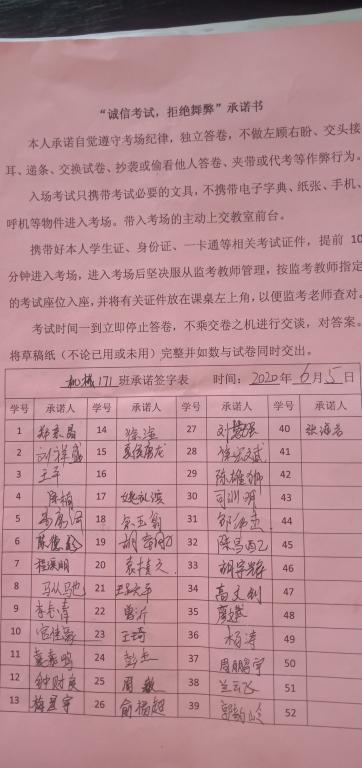 “诚信考试，拒绝舞弊”承诺书
本人承诺自觉遵守考场纪律，独立答卷，不做左顾右盼、交头接
耳、递条、交换试卷、抄袭或偷看他人答卷、夹带或代考等作弊行为。
入场考试只携带考试必要的文具，不携带电子字典、纸张、手机、
呼机等物件进入考场。带入考场的主动上交教室前台。
携带好本人学生证、身份证、一卡通等相关考试证件，提前 10
分钟进入考场，进入考场后坚决服从监考教师管理，按监考教师指定
的考试座位入座，并将有关证件放在课桌左上角，以便监考老师查对。
考试时间一到立即停止答卷，不乘交卷之机进行交谈，对答案。
将草稿纸（不论已用或未用）完整并如数与试卷同时交出。
机械171 班承诺签字表 时间：2020年6月5日
学号 承诺人 学号 承诺人 学号 承诺人 学号 承诺人
1 14 徐涛 27 40 张海若
2 刘祥盛 15 28 41
3 王军 16 29 陈雄狮 42
4 陈楠 17 姚礼滨 30 43
5 18 31 44
6 19 32 陈昌西 45
7 程溪明 20 33 胡宇辉 46
8 马从驰 21 34 高文剑 47
9 22 曾沂 35 48
10 23 王琦 36 杨涛 49
11 24 彭杰 37 周鹏宇 50
12 钟财庚 25 周敏 38 兰云飞 51
13 梅星宇 26 俞杨超 39 52